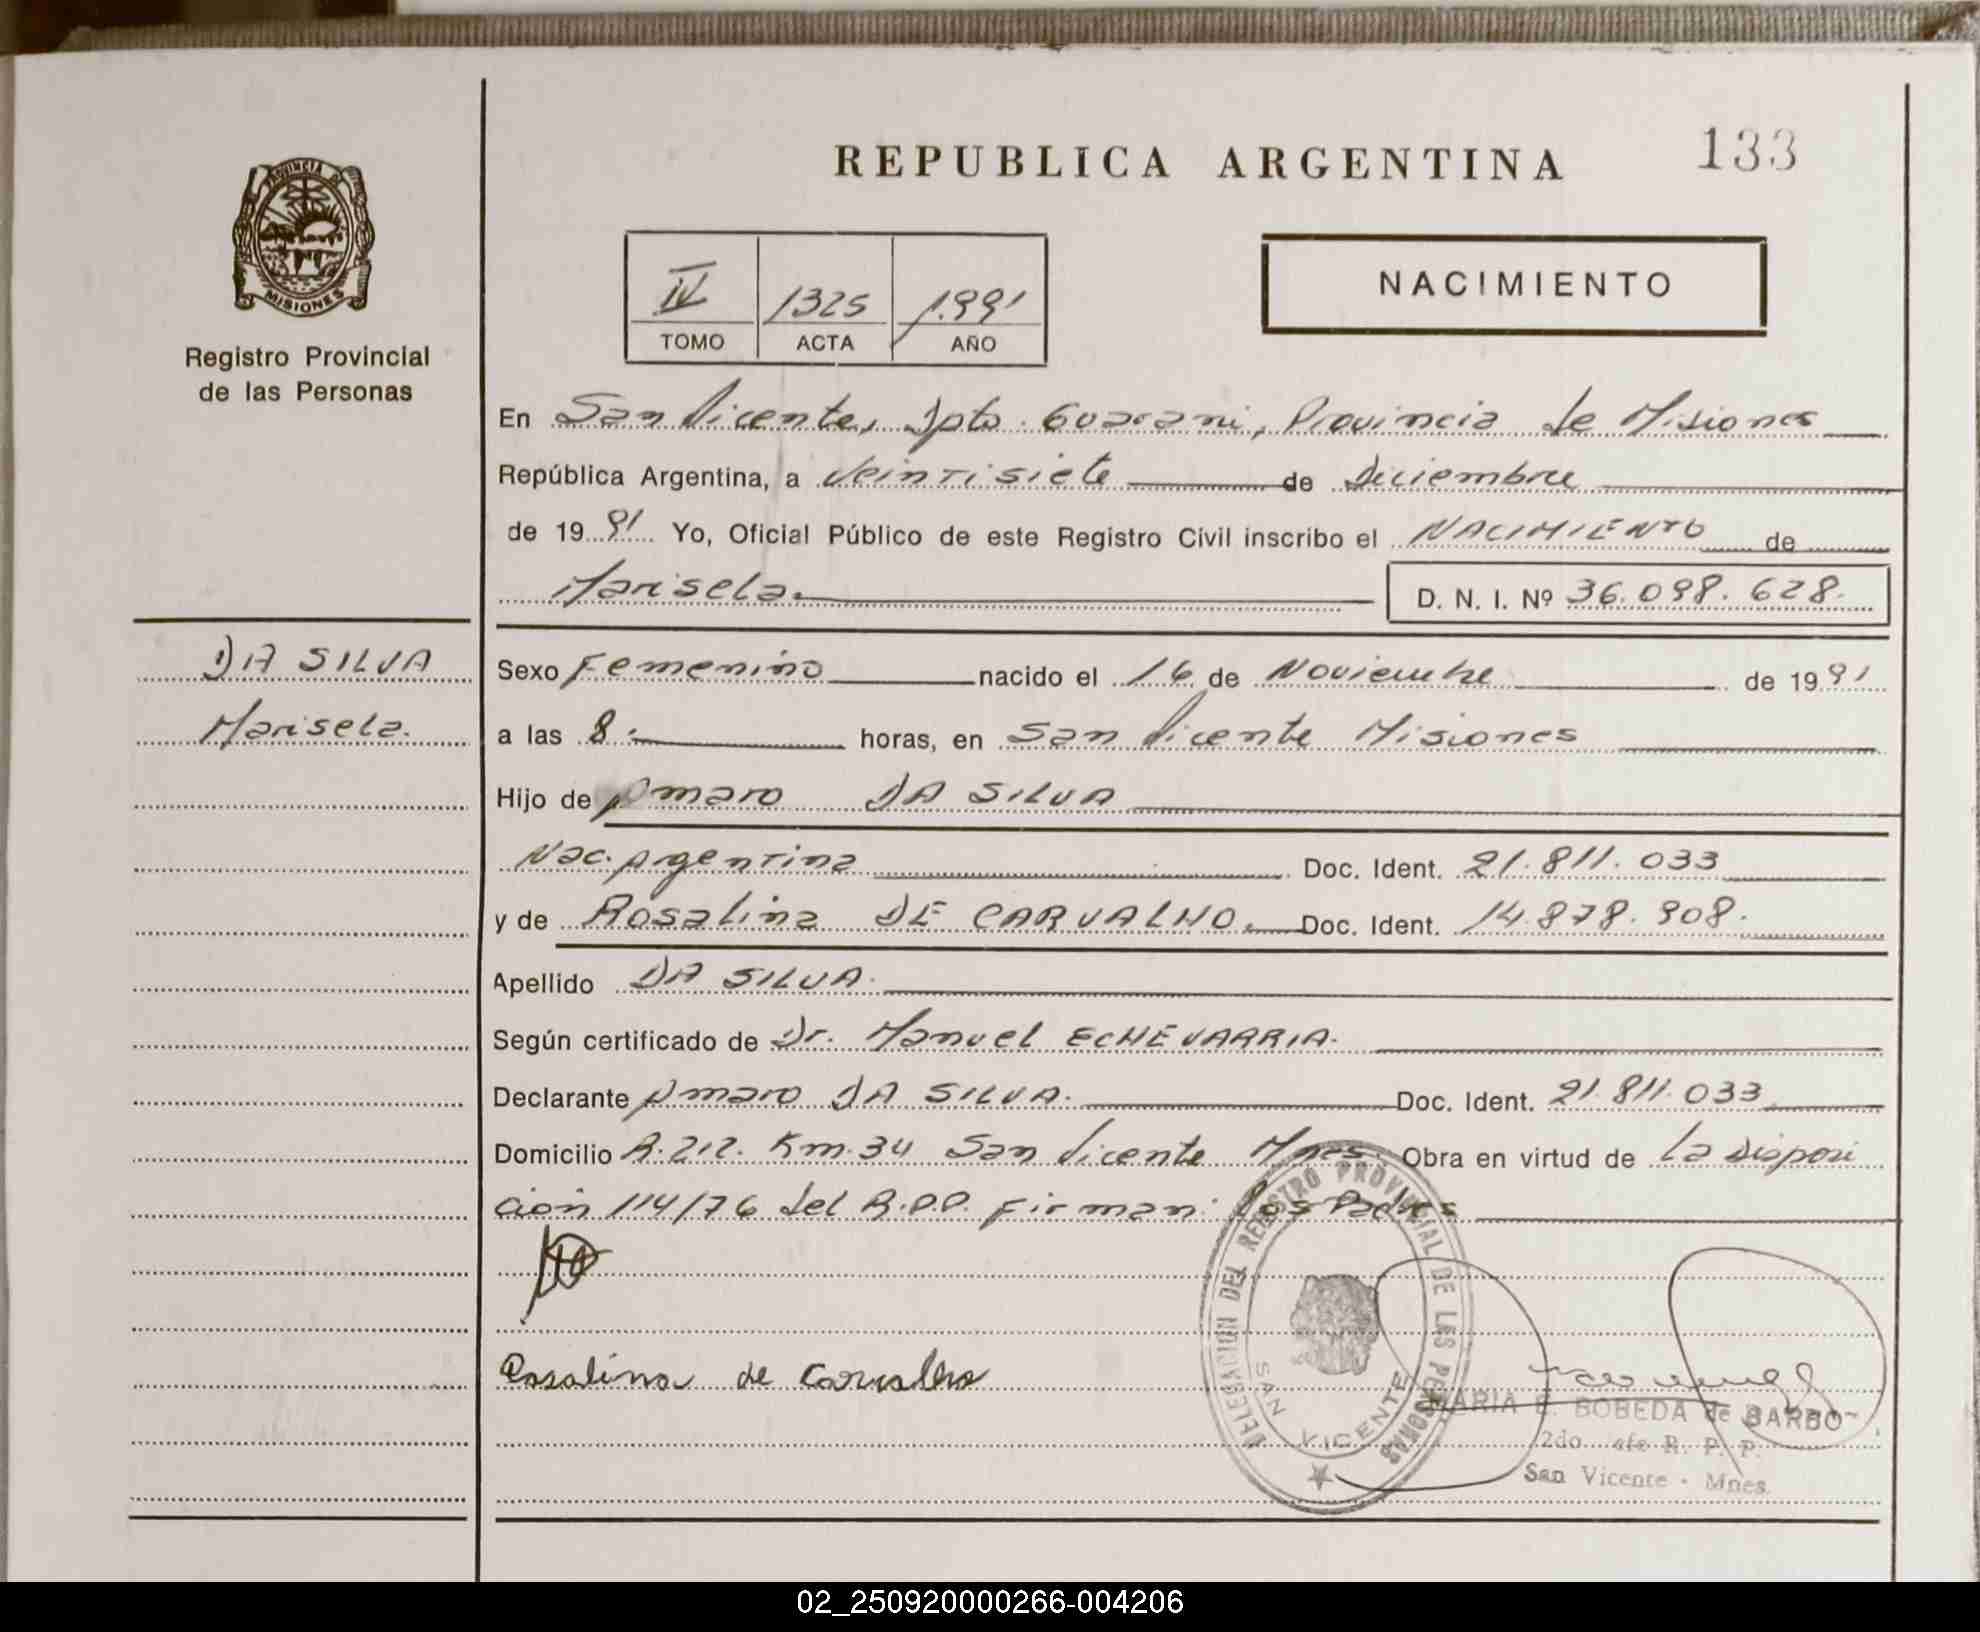 REPUBLICA ARGENTINA
133
PROVINCIA DE
MISIONES
Registro Provincial
de las Personas
IV 1325 1.991
TOMO ACTA AÑO
NACIMIENTO
En San Vicente, Dpto. Guarani, Provincia de Misiones
República Argentina, a Veintisiete de Diciembre
de 19 91 Yo, Oficial Público de este Registro Civil inscribo el NACIMIENTO de
Marisela. D. N. I. Nº 36.098.628.
DA SILVA
Marisela.
Sexo Femenino nacido el 16 de Noviembre de 19 91
a las 8. horas, en San Vicente Misiones
Hijo de Amaro DA SILVA
Nac. Argentina Doc. Ident. 21.811.033
y de Rosalina DE CARVALHO. Doc. Ident. 14.878.908.
Apellido DA SILVA.
Según certificado de Dr. Manuel ECHEVARRIA.
Declarante Amaro DA SILVA. Doc. Ident. 21.811.033
Domicilio R.212. Km.34 San Vicente Mnes. Obra en virtud de la Disposi
ción 114/76 del R.P.P. Firman: Los Padres
Rosalina de Carvalho
DELEGACION DEL REGISTRO PROVINCIAL DE LAS PERSONAS
SAN VICENTE
MARIA E. BOBEDA de BARBO
2do. Jefe R. P. P.
San Vicente - Mnes.
02_250920000266-004206